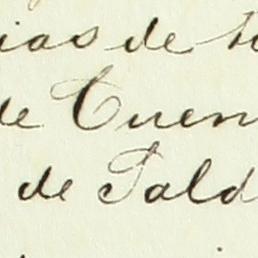 ias de
de Cuen
de Sald